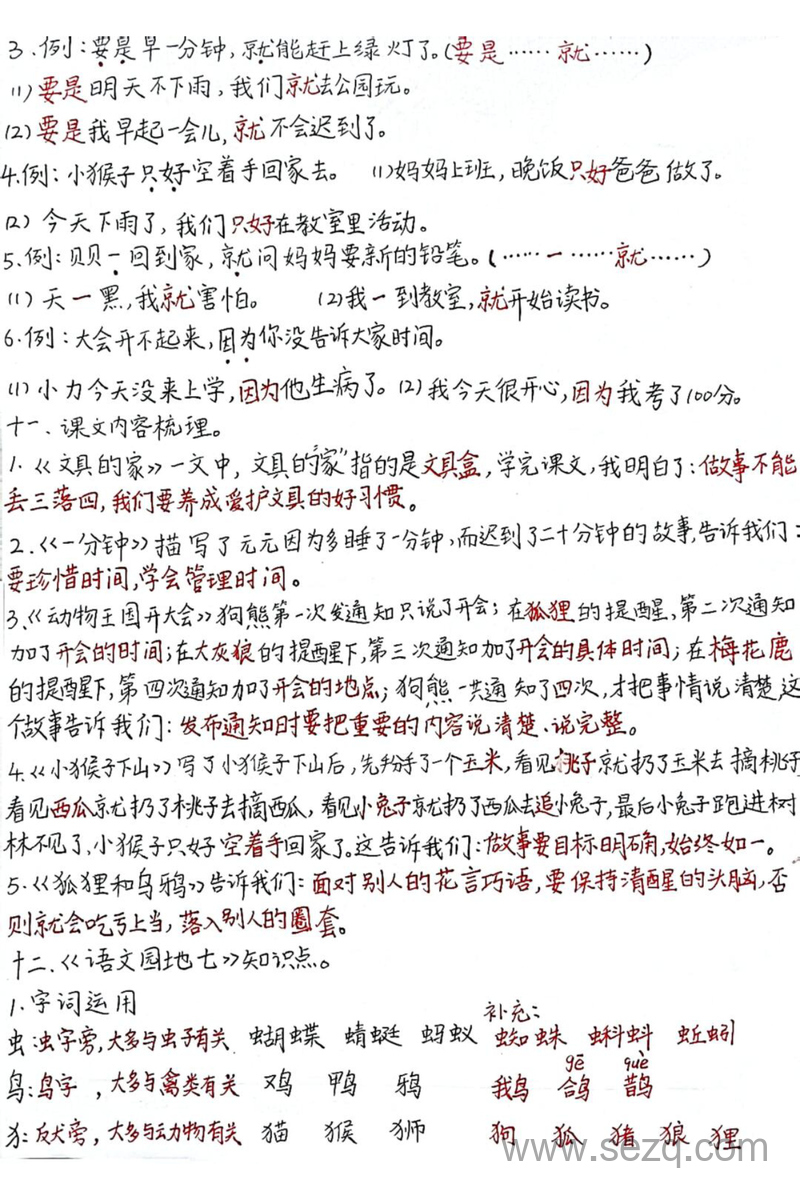 3.例：要是早一分钟，就能赶上绿灯了。(要是……就……)
(1)要是明天不下雨，我们就去公园玩。
(2)要是我早起一会儿，就不会迟到了。
4.例：小猴子只好空着手回家去。 (1)妈妈上班，晚饭只好爸爸做了。
(2)今天下雨了，我们只好在教室里活动。
5.例：贝贝一回到家，就问妈妈要新的铅笔。(……一……就……)
(1)天一黑，我就害怕。 (2)我一到教室，就开始读书。
6.例：大会开不起来，因为你没告诉大家时间。
(1)小力今天没来上学，因为他生病了。(2)我今天很开心，因为我考了100分。
十一、课文内容梳理。
1.《文具的家》一文中，文具的“家”指的是文具盒，学完课文，我明白了：做事不能
丢三落四，我们要养成爱护文具的好习惯。
2.《一分钟》描写了元元因为多睡了一分钟，而迟到了二十分钟的故事，告诉我们：
要珍惜时间，学会管理时间。
3、《动物王国开大会》狗熊第一次发通知只说了开会；在狐狸的提醒，第二次通知
加了开会的时间；在大灰狼的提醒下，第三次通知加了开会的具体时间；在梅花鹿
的提醒下，第四次通知加了开会的地点；狗熊一共通知了四次，才把事情说清楚，这
个故事告诉我们：发布通知时要把重要的内容说清楚、说完整。
4.《小猴子下山》写了小猴子下山后，先掰了一个玉米，看见桃子就扔了玉米去摘桃子
看见西瓜就扔了桃子去摘西瓜，看见小兔子就扔了西瓜去追小兔子，最后小兔子跑进树
林不见了，小猴子只好空着手回家了。这告诉我们：做事要目标明确，始终如一。
5.《狐狸和乌鸦》告诉我们：面对别人的花言巧语，要保持清醒的头脑，否
则就会吃亏上当，落入别人的圈套。
十二、《语文园地七》知识点。
1.字词运用
补充：
虫：虫字旁，大多与虫子有关 蝴蝶 蜻蜓 蚂蚁 蜘蛛 蝌蚪 蚯蚓
gē què
鸟：鸟字，大多与禽类有关 鸡 鸭 鸦 鹅 鸽 鹊
犭：反犬旁，大多与动物有关 猫 猴 狮 狗 狐 猪 狼 狸
www.sezq.com